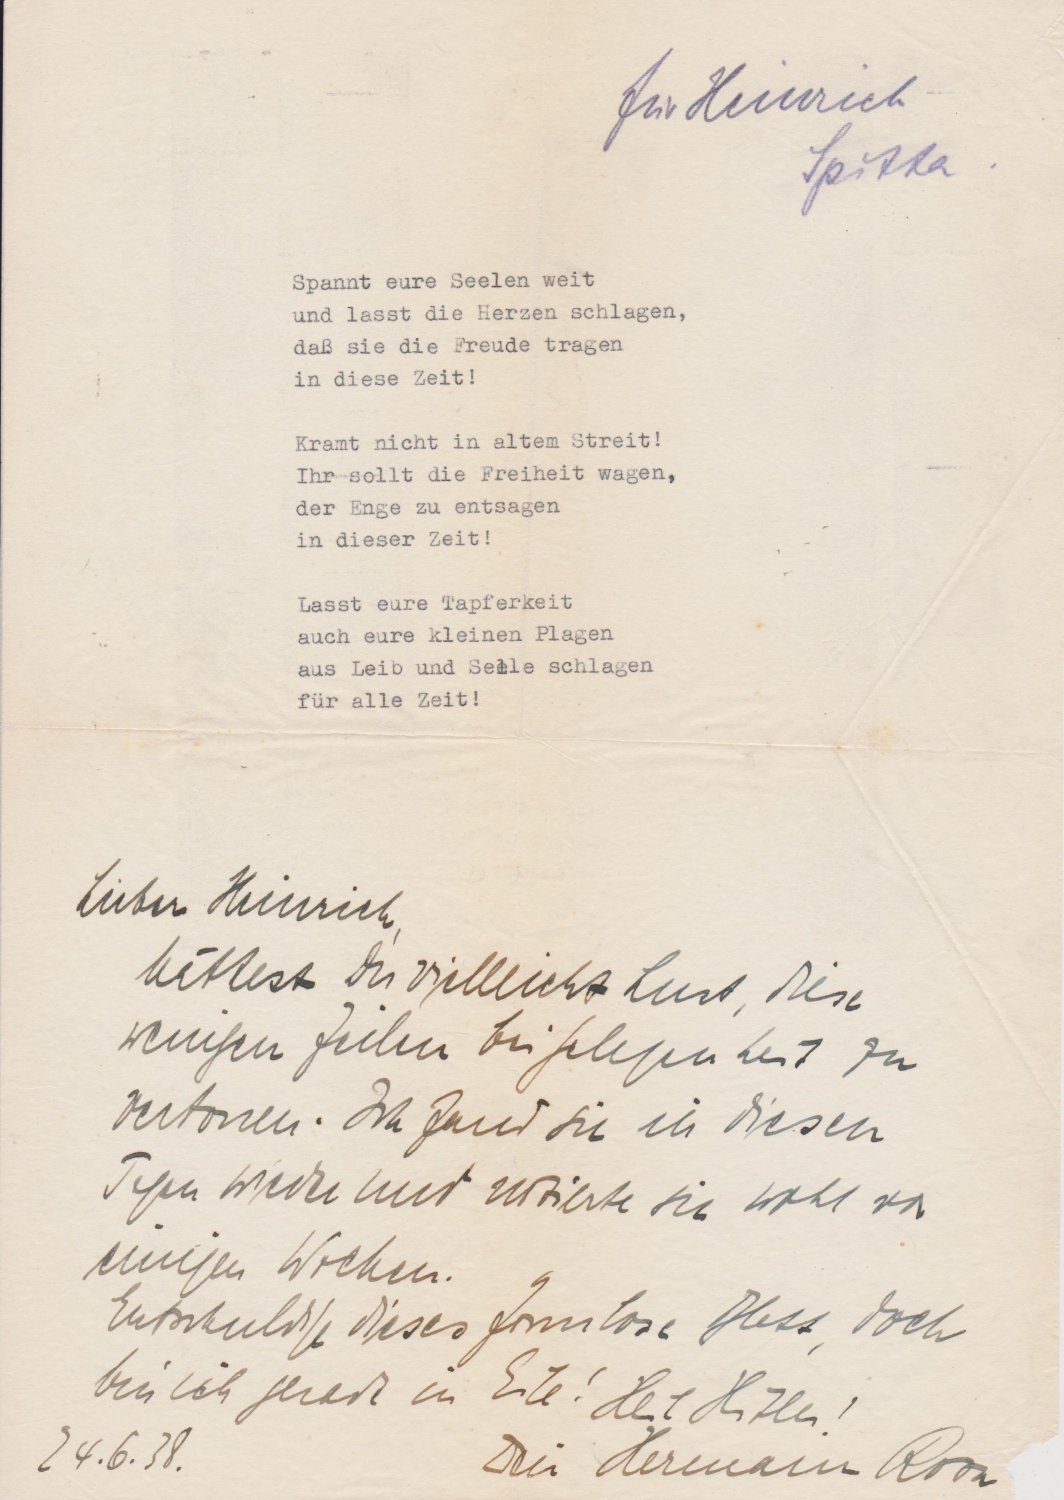 für Heinrich
Spitta.
Spannt eure Seelen weit
und lasst die Herzen schlagen,
daß sie die Freude tragen
in diese Zeit!
Kramt nicht in altem Streit!
Ihr sollt die Freiheit wagen,
der Enge zu entsagen
in dieser Zeit!
Lasst eure Tapferkeit
auch eure kleinen Plagen
aus Leib und Seele schlagen
für alle Zeit!
Lieber Heinrich,
hättest Du vielleicht Lust, diese
wenigen Zeilen bei Gelegenheit zu
vertonen. Ich fand sie in diesen
Tagen wieder und notierte sie wohl vor
einigen Wochen.
Entschuldige dieses formlose Blatt, doch
bin ich gerade in Eile! Heil Hitler!
24.6.38.
Dein Hermann Roth